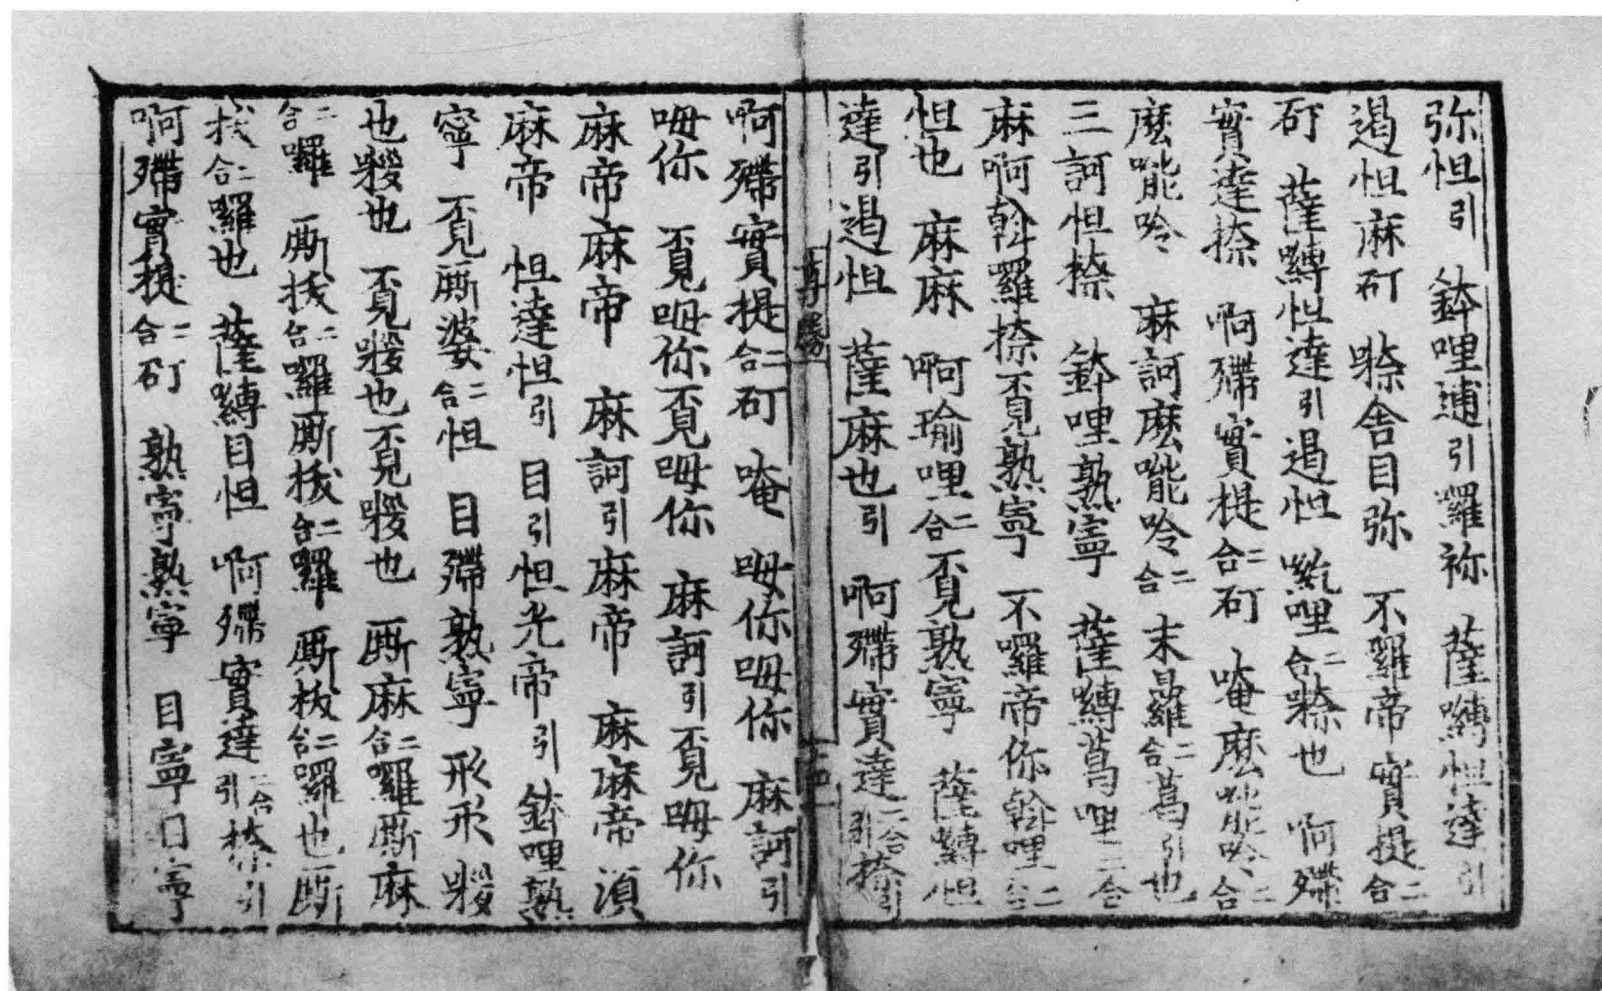 弥怛引 鉢哩逋引囉祢 薩嚩怛達引
遏怛麻矴 𭊼舎目弥 不囉帝實提二合
矴 薩嚩怛達引遏怛 哩二合也 啊殢
實達捺 啊殢實提二合矴 唵麽㘄呤二合
麽㘄呤 麻訶麽㘄呤二合 末曷羅二合葛引也
三訶怛捺 鉢哩熟寧 薩嚩葛哩二合
麻啊斡羅捺覔熟寧 不囉帝你斡哩二合
怛也 麻麻 啊瑜哩二合覔熟寧 薩嚩怛
達引遏怛 薩麻也引 啊殢實達二合引捺引
尊勝
啊殢實提二合矴 唵 呣你呣你 麻訶引
呣你 覔呣你覔呣你 麻訶引覔呣你
麻帝麻帝 麻訶引麻帝 麻麻帝 湏
麻帝 怛達怛引 目引怛光帝引 鉢哩熟
寧 覔厮婆二合怛 目殢熟寧 形形
也也 覔也覔也 厮麻二合囉厮麻
二合囉 厮拔二合囉厮拔二合囉 厮拔二合囉也厮
拔二合囉也 薩嚩目怛 啊殢實達二合引捺引
啊殢實提二合矴 熟寧熟寧 目寧目寧